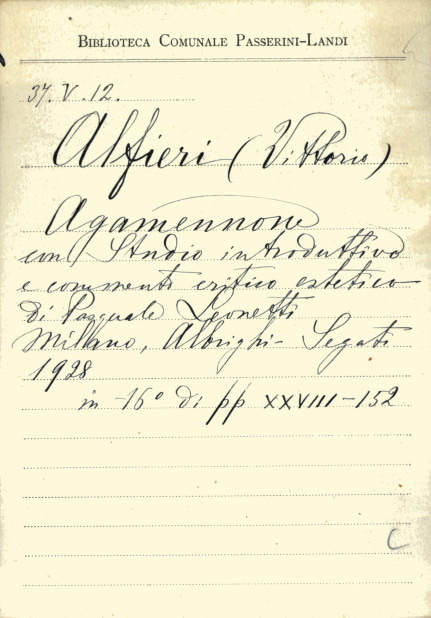 BIBLIOTECA COMUNALE PASSERINI-LANDI
37. V. 12.
Alfieri (Vittorio)
Agamennone
con Studio introduttivo
e commento critico estetico
di Pasquale Leonetti
Milano, Albrighi - Segati
1928
in -16° di pp XXVIII-152
C